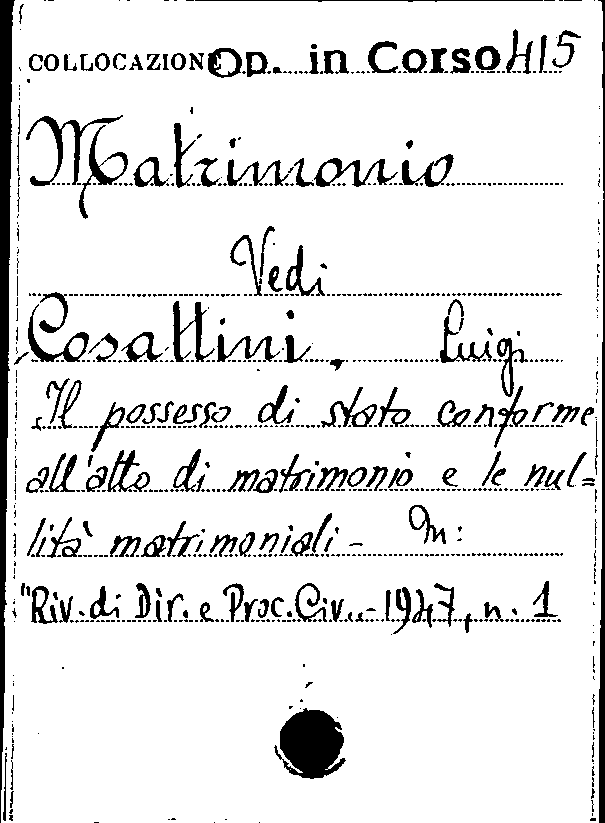 COLLOCAZIONE Op. in Corso 415
Matrimonio
Vedi
Cosattini, Luigi
Il possesso di stato conforme
all'atto di matrimonio e le nul=
lità matrimoniali - In:
"Riv. di Dir. e Proc. Civ.. - 1947, n. 1